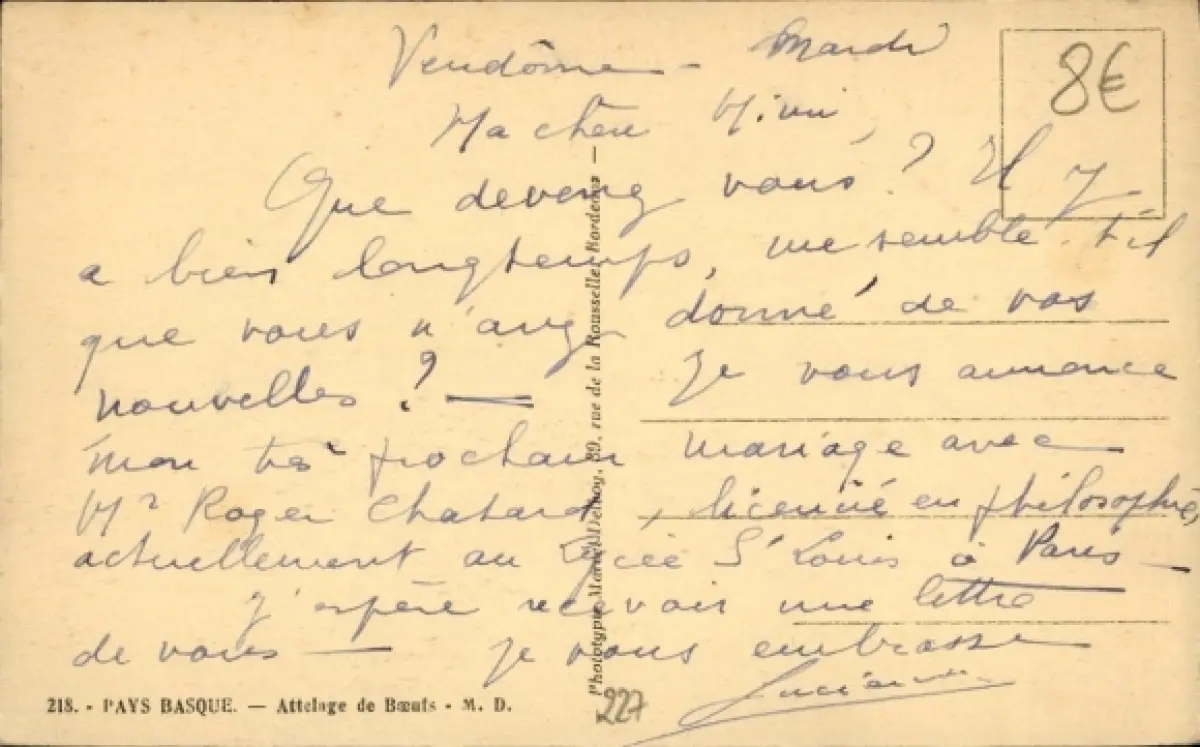 Vendôme - Mardi
8€
Ma chère Mimi,
Que devenez vous ? Il y
a bien longtemps, me semble t'il
que vous n'avez donné de vos
nouvelles ? — Je vous annonce
mon très prochain mariage avec
Mr Roger Chatard, licencié en philosophie,
actuellement au Lycée St Louis à Paris —
J'espère recevoir une lettre
de vous — Je vous embrasse
Lucienne
218. - PAYS BASQUE. — Attelage de Bœufs - M. D.
227
Phototypie Marcel Delboy, 89, rue de la Rousselle, Bordeaux —